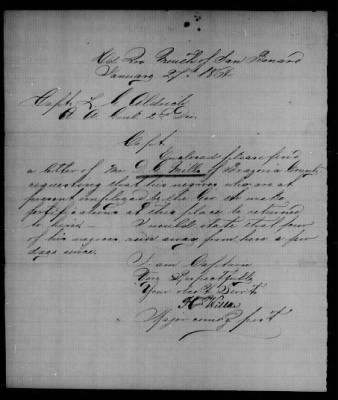 Hd Qrs Mouth of San Bernard
January 27th 186
Capt. L. G. Aldrich
A A Genl 2nd Div.
Capt.
Enclosed please find
a letter of Mr. Mills of Brazoria County
requesting that his negroes who are at
present employed by the Gov to make
fortifications at this place be returned
to him — I would state that four
of his negroes ran away from here a few
days since.
I am Captain
Very Respectfully
Your obedt Servt
Major comdg post